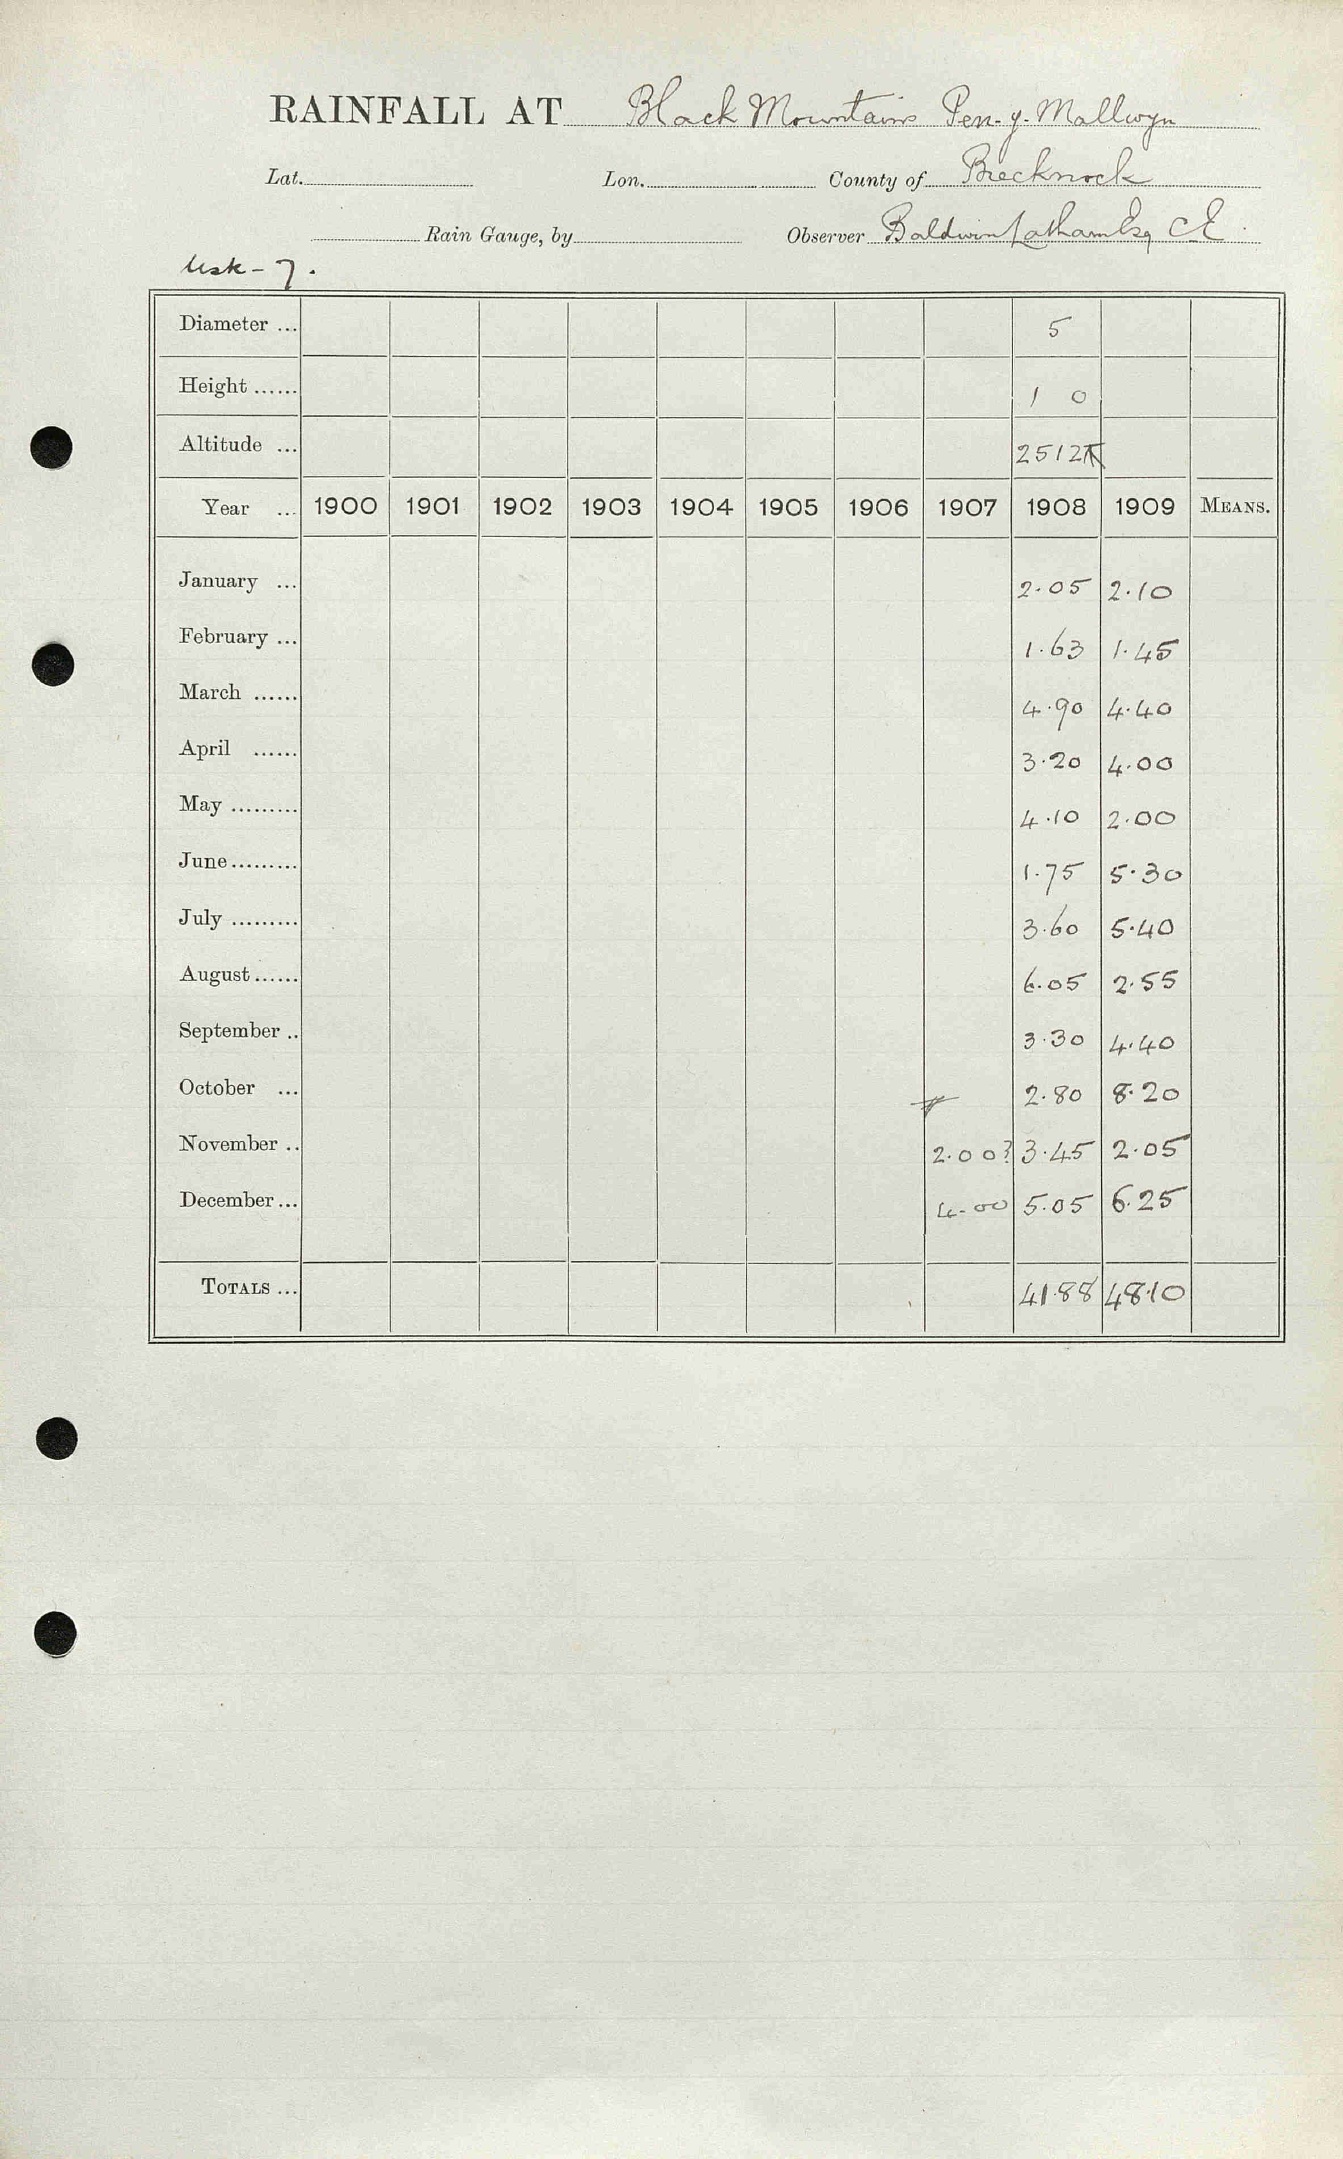 RAINFALL AT Black Mountains Pen-y-Mallwyn
Lat. Lon. County of Brecknock
Rain Gauge, by Observer Baldwin Latham Esq CE.
Usk-7.
Diameter ... 5
Height ...... 1 0
Altitude ... 2512
Year ... 1900 1901 1902 1903 1904 1905 1906 1907 1908 1909 MEANS.
January ... 2.05 2.10
February ... 1.63 1.45
March ...... 4.90 4.40
April ...... 3.20 4.00
May ......... 4.10 2.00
June ......... 1.75 5.30
July ......... 3.60 5.40
August ...... 6.05 2.55
September .. 3.30 4.40
October ... 2.80 8.20
November .. 2.00? 3.45 2.05
December ... 4.00 5.05 6.25
TOTALS ... 41.88 48.10